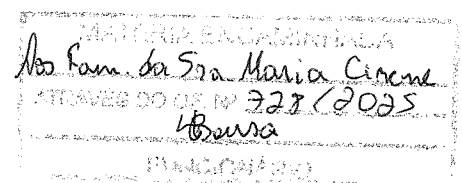 MATÉRIA ENCAMINHADA
Aos Fam. da Sra Maria Cirene
ATRAVÉS DO OF. Nº 728/2025
FUNCIONÁRIO